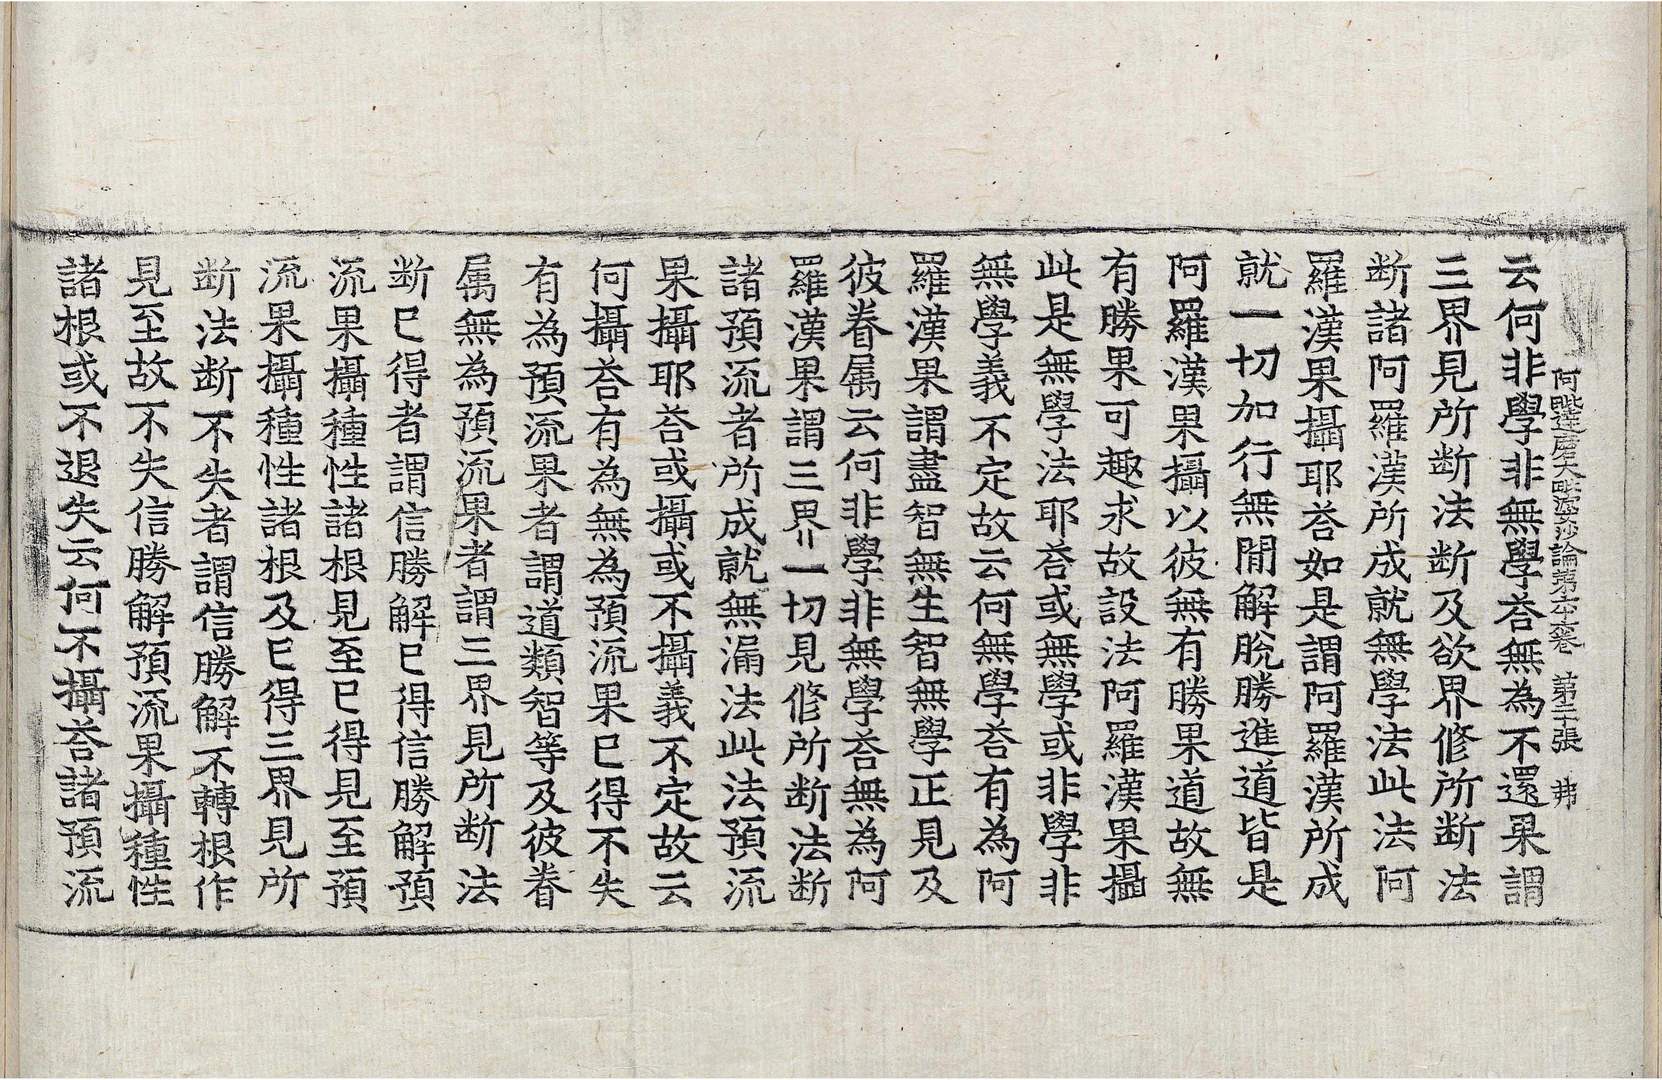 阿毗達磨大毗婆沙論第六十六卷 第二十張 弗
云何非學非無學荅無為不還果謂
三界見所断法断及欲界修所断法
断諸阿羅漢所成就無學法此法阿
羅漢果攝耶荅如是謂阿羅漢所成
就一切加行無閒解脫勝進道皆是
阿羅漢果攝以彼無有勝果道故無
有勝果可趣求故設法阿羅漢果攝
此是無學法耶荅或無學或非學非
無學義不定故云何無學荅有為阿
羅漢果謂盡智無生智無學正見及
彼眷属云何非學非無學荅無為阿
羅漢果謂三界一切見修所断法断
諸預流者所成就無漏法此法預流
果攝耶荅或攝或不攝義不定故云
何攝荅有為無為預流果已得不失
有為預流果者謂道類智等及彼眷
属無為預流果者謂三界見所断法
断已得者謂信勝解已得信勝解預
流果攝種性諸根見至已得見至預
流果攝種性諸根及已得三界見所
断法断不失者謂信勝解不轉根作
見至故不失信勝解預流果攝種性
諸根或不退失云何不攝荅諸預流